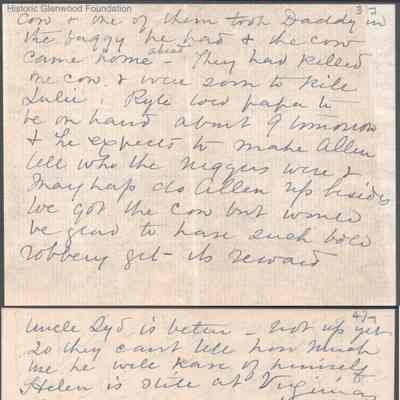 Historic Glenwood Foundation
3/7
cow & one of them took Daddy in
the buggy he had & the cow
came home about - They had killed
one cow & were soon to kill
Julie, Ryle told papa to
be on hand about 9 tomorrow
& he expects to make Allen
tell who the niggers were &
mayhap do Allen up besides
We got the cow but would
be glad to have such bold
robbery get its reward
4/7
Uncle Syd is better - not up yet
So they can't tell how much
use he will have of himself
Helen is still at Virginia